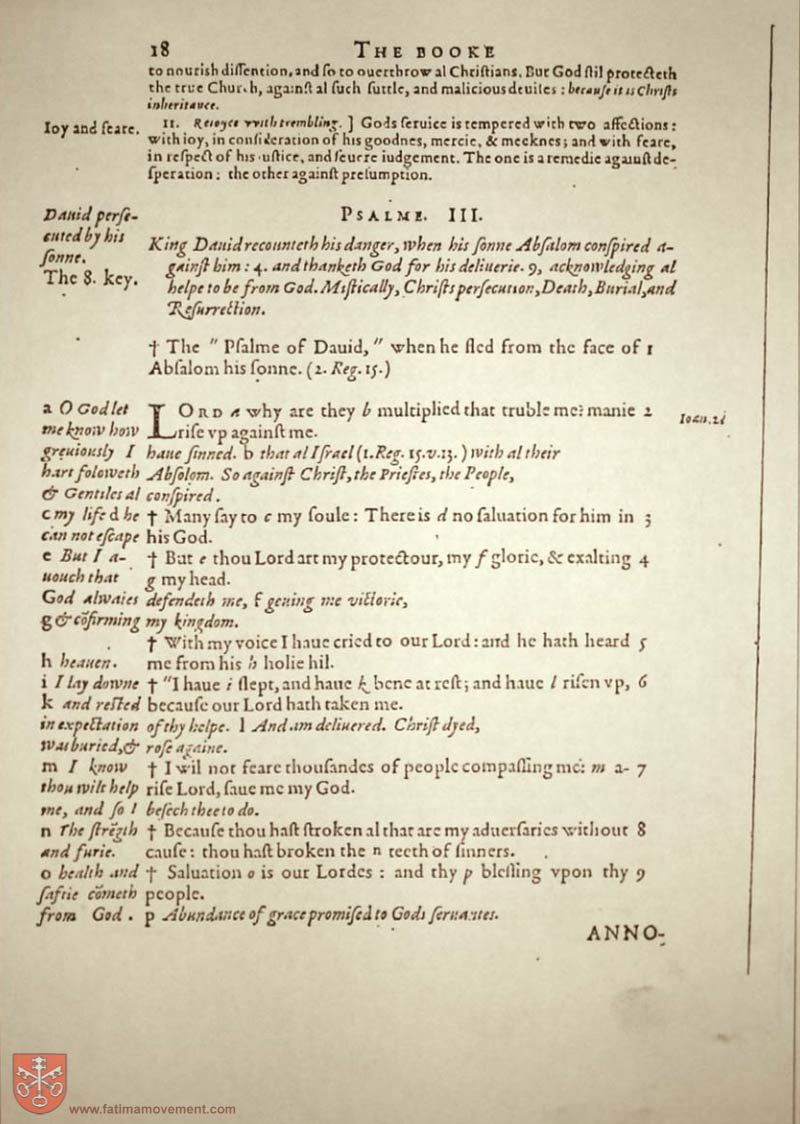 18 THE BOOKE
to nourish diſſention, and ſo to ouerthrow al Chriſtians. But God ſtil protecteth
the true Church, againſt al ſuch ſuttle, and malicious deuiſes : becauſe it is Chriſts
inheritance.
Ioy and feare.
11. Reioyce with trembling. ] Gods ſeruice is tempered with two affections :
with ioy, in conſideration of his goodnes, mercie, & meeknes; and with feare,
in reſpect of his iuſtice, and ſeuere iudgement. The one is a remedie againſt de-
ſperation : the other againſt preſumption.
PSALME. III.
Dauid perſe-
cuted by his
ſonne.
The 8. key.
King Dauid recounteth his danger, when his ſonne Abſalom conſpired a-
gainſt him : 4. and thanketh God for his deliuerie. 9, acknowledging al
helpe to be from God. Miſtically, Chriſts perſecution, Death, Burial, and
Reſurrection.
† The " Pſalme of Dauid, " when he fled from the face of 1
Abſalom his ſonne. (2. Reg. 15.)
a O God let LORD a why are they b multiplied that truble me? manie 2 Ioan. 2i
me know how riſe vp againſt me.
greuiously I haue ſinned. b that al Iſrael (1. Reg. 15. v. 13.) with al their
hart foloweth Abſolom. So againſt Chriſt, the Prieſtes, the People,
& Gentiles al conſpired.
c my life d he † Many ſay to c my ſoule : There is d no ſaluation for him in 3
can not eſcape his God.
e But I a- † But e thou Lord art my protectour, my f glorie, & exalting 4
uouch that g my head.
God alwaies defendeth me, f geuing me victorie,
g & cōfirming my kingdom.
† With my voice I haue cried to our Lord : and he hath heard 5
h heauen. me from his h holie hil.
i I lay downe † "I haue i ſlept, and haue k bene at reſt; and haue l riſen vp, 6
k and reſted becauſe our Lord hath taken me.
in expectation of thy helpe. l And am deliuered. Chriſt dyed,
was buried, & roſe againe.
m I know † I wil not feare thouſandes of people compaſſing me: m a- 7
thou wilt help riſe Lord, ſaue me my God.
me, and ſo I beſech thee to do.
n The ſtrēgth † Becauſe thou haſt ſtroken al that are my aduerſaries without 8
and furie. cauſe : thou haſt broken the n teeth of ſinners.
o health and † Saluation o is our Lordes : and thy p bleſſing vpon thy 9
ſaftie cōmeth people.
from God. p Abundance of grace promiſed to Gods ſeruantes.
ANNO-
www.fatimamovement.com